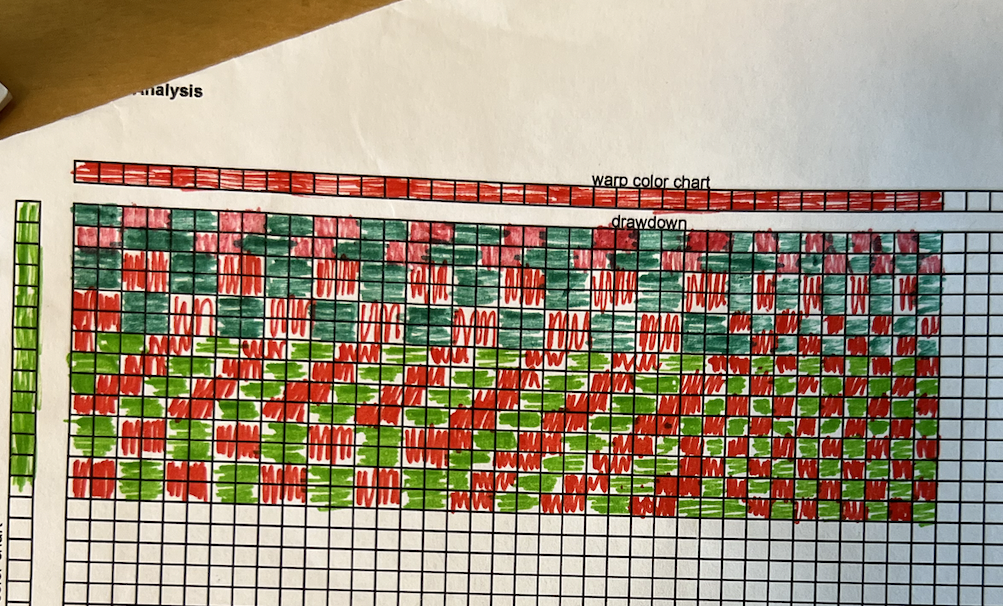 Analysis
warp color chart
drawdown